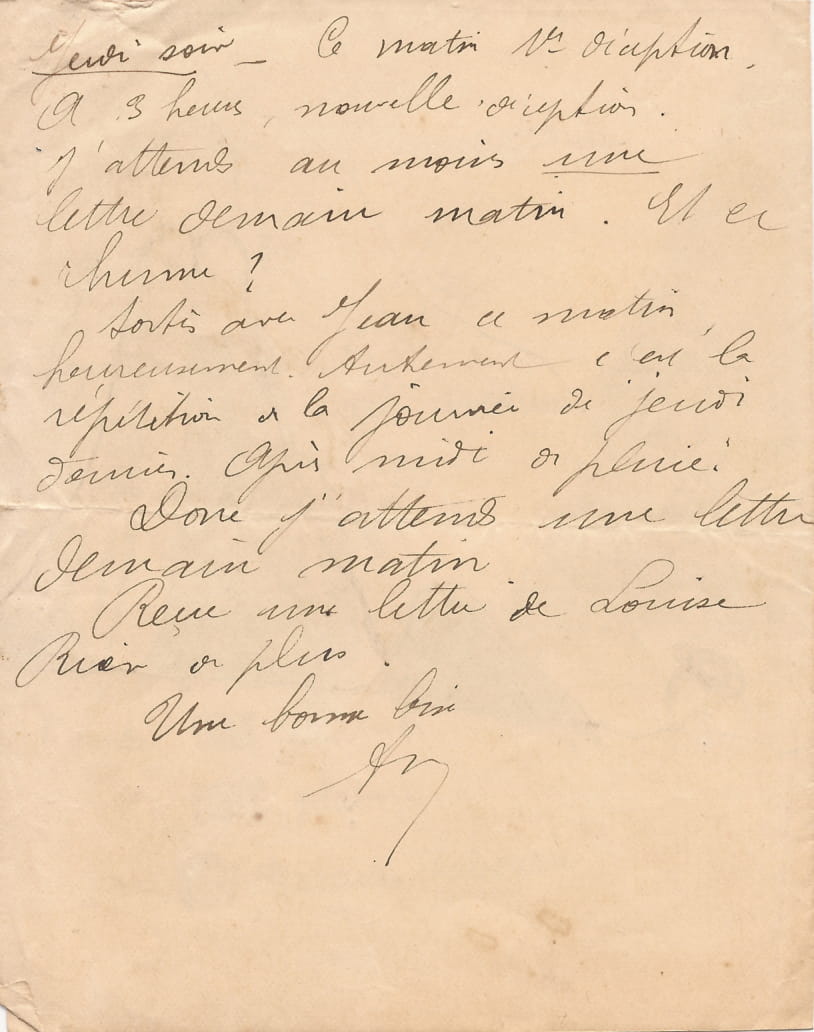 Jeudi soir _ Ce matin 1re déception.
A 3 heures, nouvelle déception.
J'attends au moins une
lettre demain matin. Et ce
rhume ?
Sortis avec Jean ce matin,
heureusement. Autrement c'est la
répétition de la journée de jeudi
dernier. Après midi de pluie.
Donc j'attends une lettre
demain matin
Reçu une lettre de Louise
Rien de plus.
Une bonne bise